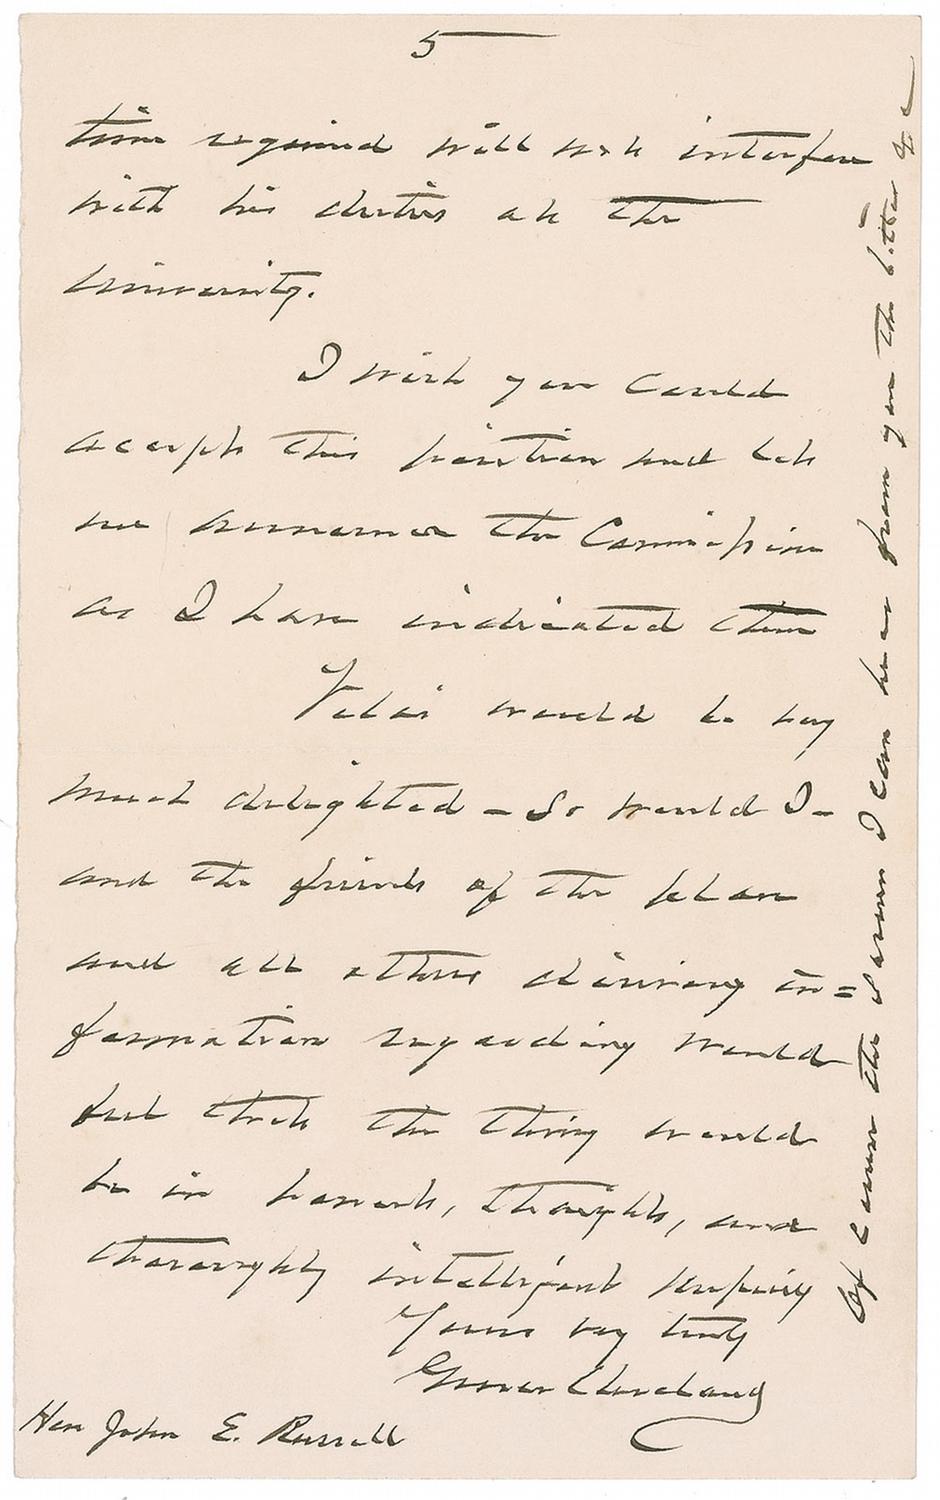 5
time required will not interfere
with his duties at the
University.
I wish you could
accept this position and let
me announce the Commission
as I have indicated them
Vilas would be very
much delighted – So would I –
and the friends of the plan
and all others desiring in=
formation regarding would
feel that the thing would
be in honest, thoughtful, and
thoroughly intelligent keeping
Yours very truly
Grover Cleveland
Hon John E. Russell
Of course the sooner I can hear from you the better &c